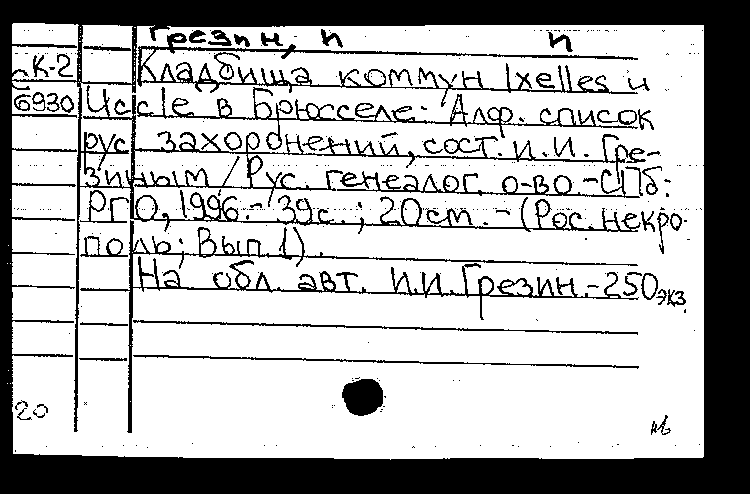 Грезин, И И
СК-2 Кладбища коммун Ixelles и
6930 Uccle в Брюсселе: Алф. список
рус. захоронений, сост. И.И. Гре-
зиным / Рус. генеалог. о-во.-СПб.:
РГО, 1996.- 39с.; 20см. - (Рос. некро-
поль; Вып. 1).
На обл. авт. И.И. Грезин.-250 экз.
20